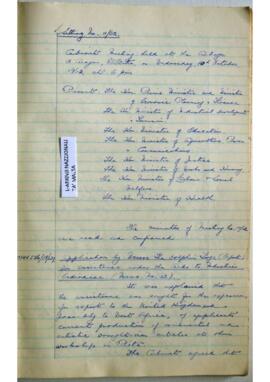 Sitting No. 11/62.
Cabinet Meeting held at the Auberge
d'Aragon, Valletta on Wednesday 10th October
1962 at 6 p.m.
Present: The Hon. Prime Minister and Minister
of Economic Planning & Finance
The Hon. Minister of Industrial Development
& Tourism
The Hon. Minister of Education
The Hon. Minister of Agriculture, Power
& Communications
The Hon. Minister of Justice
The Hon. Minister of Works and Housing
The Hon. Minister of Labour & Social
Welfare
The Hon. Minister of Health
L-ARKIVJI NAZZJONALI
TA' MALTA
The minutes of Meeting No. 10/62
were read and confirmed
Application by Messrs The Dolphin
for assistance under the Aids to Industries
Ordinance
It was explained that
the assistance was sought for the expansion,
for export to the United Kingdom and
possibly to North Africa, of applicants'
current production of ornamental and
artistic articles at their
workshop in
The Cabinet agreed that